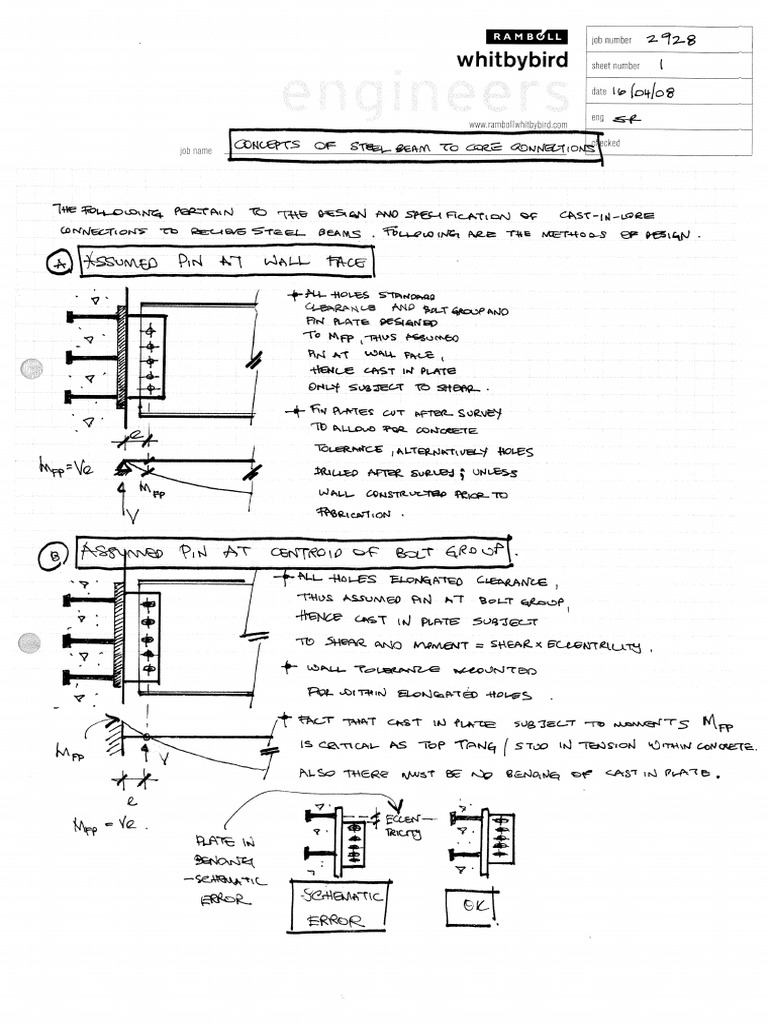 RAMBOLL
whitbybird
engineers
www.rambollwhitbybird.com
job number 2928
sheet number 1
date 16/04/08
eng SR
checked
job name CONCEPTS OF STEEL BEAM TO CORE CONNECTIONS
THE FOLLOWING PERTAIN TO THE DESIGN AND SPECIFICATION OF CAST-IN-CORE
CONNECTIONS TO RECIEVE STEEL BEAMS. FOLLOWING ARE THE METHODS OF DESIGN.
A ASSUMED PIN AT WALL FACE
ALL HOLES STANDARD
CLEARANCE AND BOLT GROUP AND
FIN PLATE DESIGNED
TO MFP, THUS ASSUMED
PIN AT WALL FACE,
HENCE CAST IN PLATE
ONLY SUBJECT TO SHEAR.
FIN PLATES CUT AFTER SURVEY
TO ALLOW FOR CONCRETE
TOLERANCE, ALTERNATIVELY HOLES
DRILLED AFTER SURVEY; UNLESS
WALL CONSTRUCTED PRIOR TO
FABRICATION.
e
MFP = Ve
MFP
V
B ASSUMED PIN AT CENTROID OF BOLT GROUP.
ALL HOLES ELONGATED CLEARANCE,
THUS ASSUMED PIN AT BOLT GROUP,
HENCE CAST IN PLATE SUBJECT
TO SHEAR AND MOMENT = SHEAR x ECCENTRICITY.
WALL TOLERANCE ACCOUNTED
FOR WITHIN ELONGATED HOLES.
FACT THAT CAST IN PLATE SUBJECT TO MOMENTS MFP
IS CRITICAL AS TOP TANG / STUD IN TENSION WITHIN CONCRETE.
ALSO THERE MUST BE NO BENDING OF CAST IN PLATE.
MFP
V
e
MFP = Ve.
PLATE IN
BENDING
-SCHEMATIC
ERROR
ECCEN-
TRICITY
SCHEMATIC
ERROR
OK